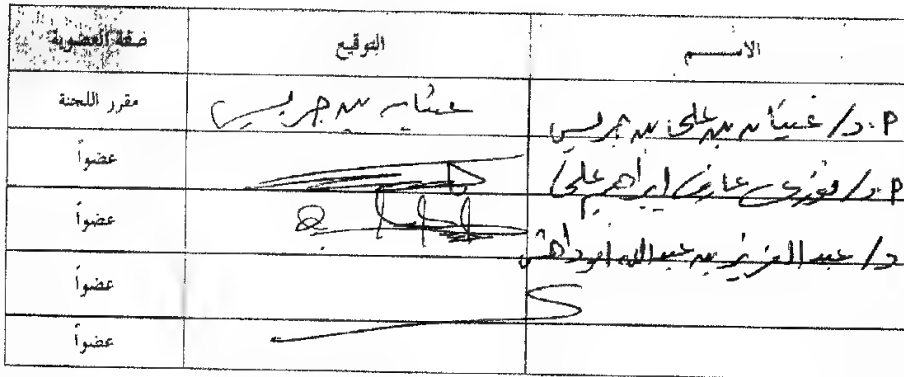 الاسم التوقيع صفة العضوية
أ.د/ غيثان بن علي بن جريس غيثان بن جريس مقرر اللجنة
أ.د/ فوزي علي عضواً
د/ عبد العزيز بن عبد الله أبو داهش عضواً
عضواً
عضواً